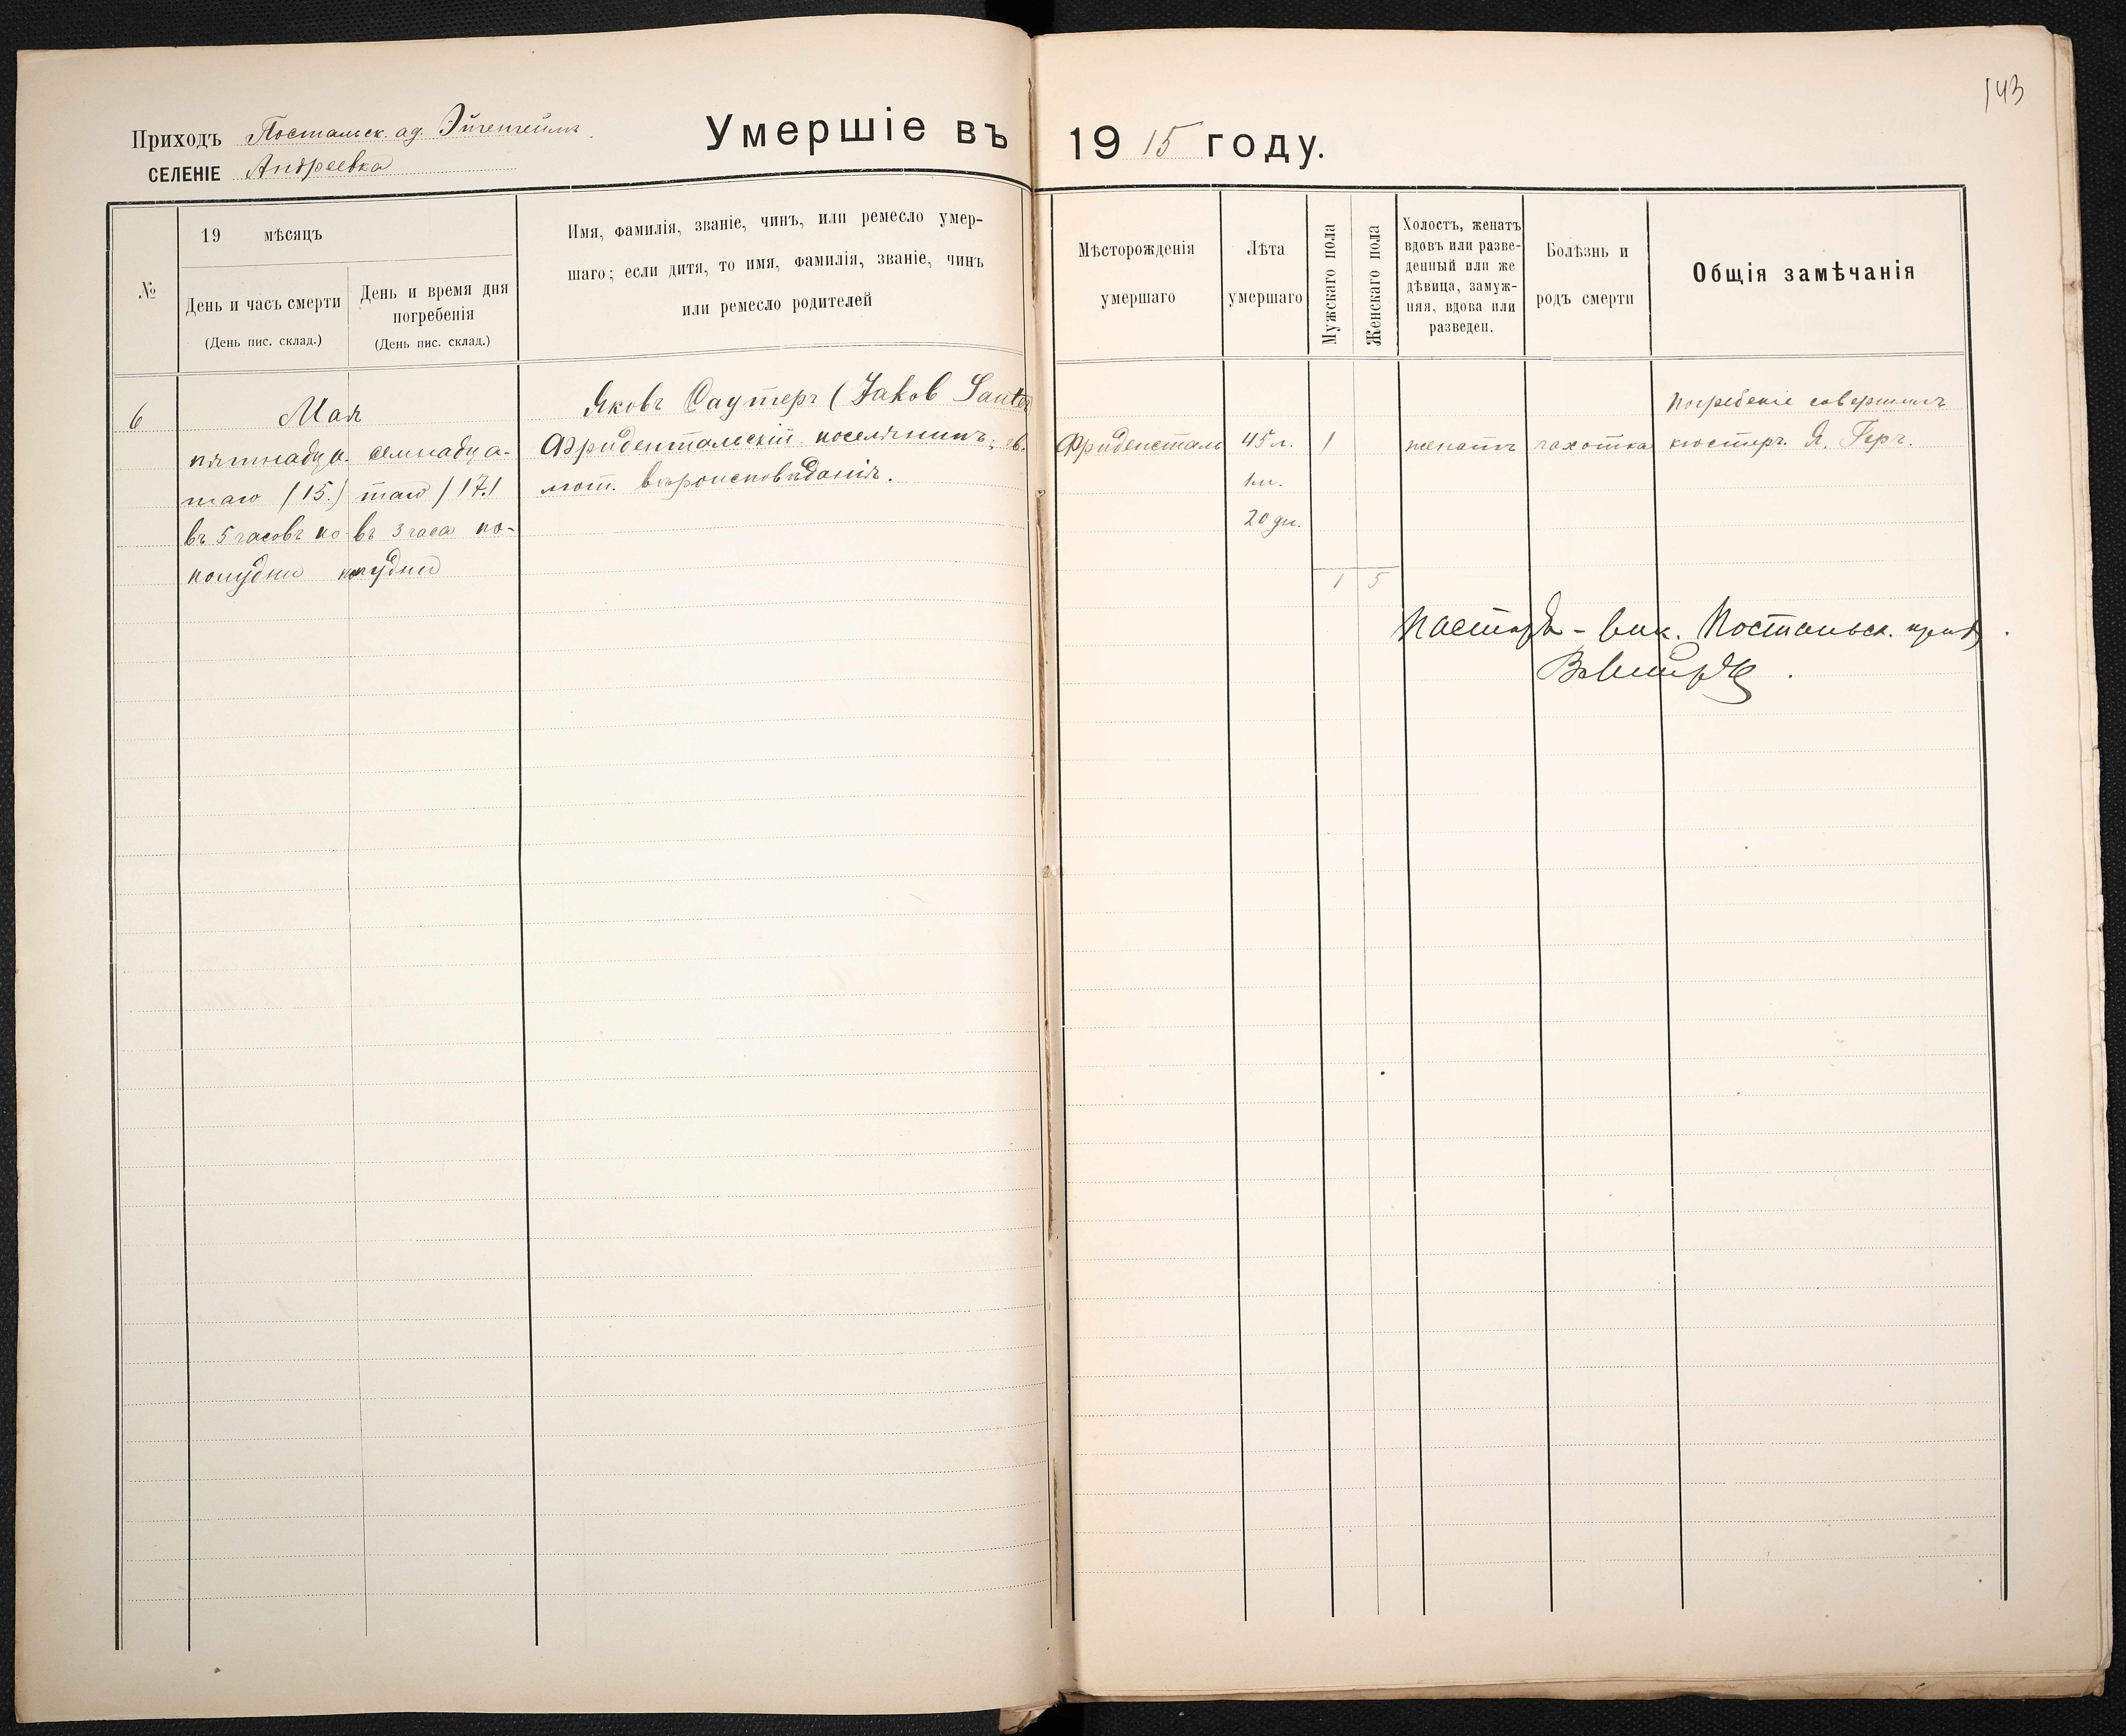 143
Приходъ Постальск. ад. Эйгенгеймъ.
СЕЛЕНІЕ Андреевка
Умершіе въ 1915 году.
№
19 мѣсяцъ
День и часъ смерти
(День пис. склад.)
День и время дня
погребенія
(День пис. склад.)
Имя, фамилія, званіе, чинъ, или ремесло умер-
шаго; если дитя, то имя, фамилія, званіе, чинъ
или ремесло родителей
Мѣсторожденія
умершаго
Лѣта
умершаго
Мужскаго пола
Женскаго пола
Холостъ, женатъ
вдовъ или разве-
денный или же
дѣвица, замуж-
няя, вдова или
разведен.
Болѣзнь и
родъ смерти
Общія замѣчанія
6
Мая
пятнадца-
таго (15.)
въ 5 часовъ по-
полудни
семнадца-
таго (17.)
въ 3 часа по-
полудни
Яковъ Саутеръ (Jakob Sauter)
Фриденталъскій поселянинъ, ев.
лют. вѣроисповѣданія.
Фриденсталь
45 л.
1 м.
20 дн.
1
женатъ
чахотка
Погребеніе совершилъ
кюстеръ Я. Герг.
1 5
Пасторъ-вик. Постальск. прих.